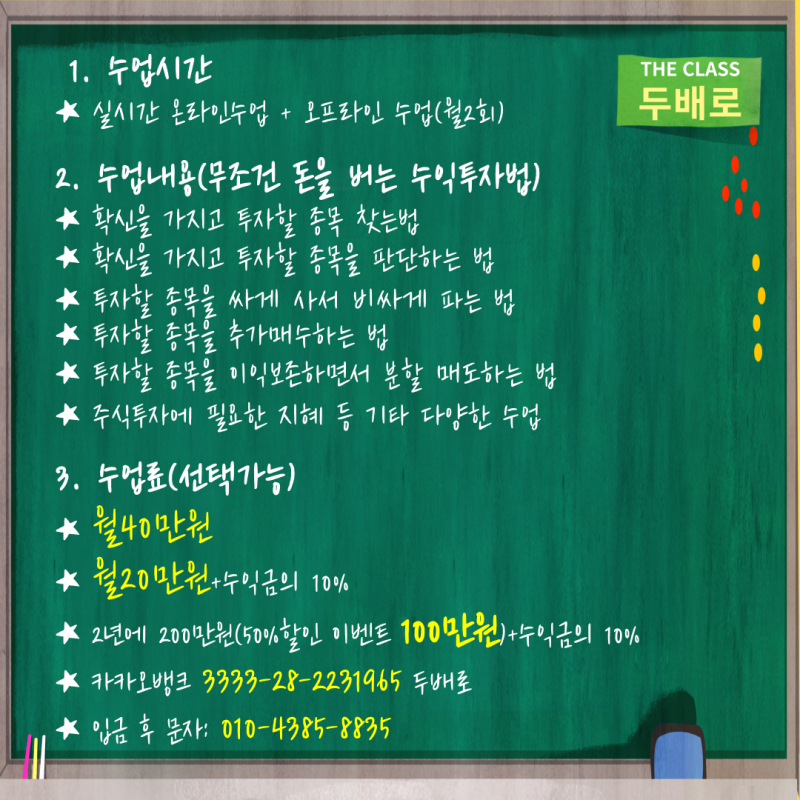 1. 수업시간
★ 실시간 온라인수업 + 오프라인 수업(월2회)
THE CLASS
두배로
2. 수업내용(무조건 돈을 버는 수익투자법)
★ 확신을 가지고 투자할 종목 찾는법
★ 확신을 가지고 투자할 종목을 판단하는 법
★ 투자할 종목을 싸게 사서 비싸게 파는 법
★ 투자할 종목을 추가매수하는 법
★ 투자할 종목을 이익보존하면서 분할 매도하는 법
★ 주식투자에 필요한 지혜 등 기타 다양한 수업
3. 수업료(선택가능)
★ 월40만원
★ 월20만원+수익금의 10%
★ 2년에 200만원(50%할인 이벤트 100만원)+수익금의 10%
★ 카카오뱅크 3333-28-2231965 두배로
★ 입금 후 문자: 010-4385-8835